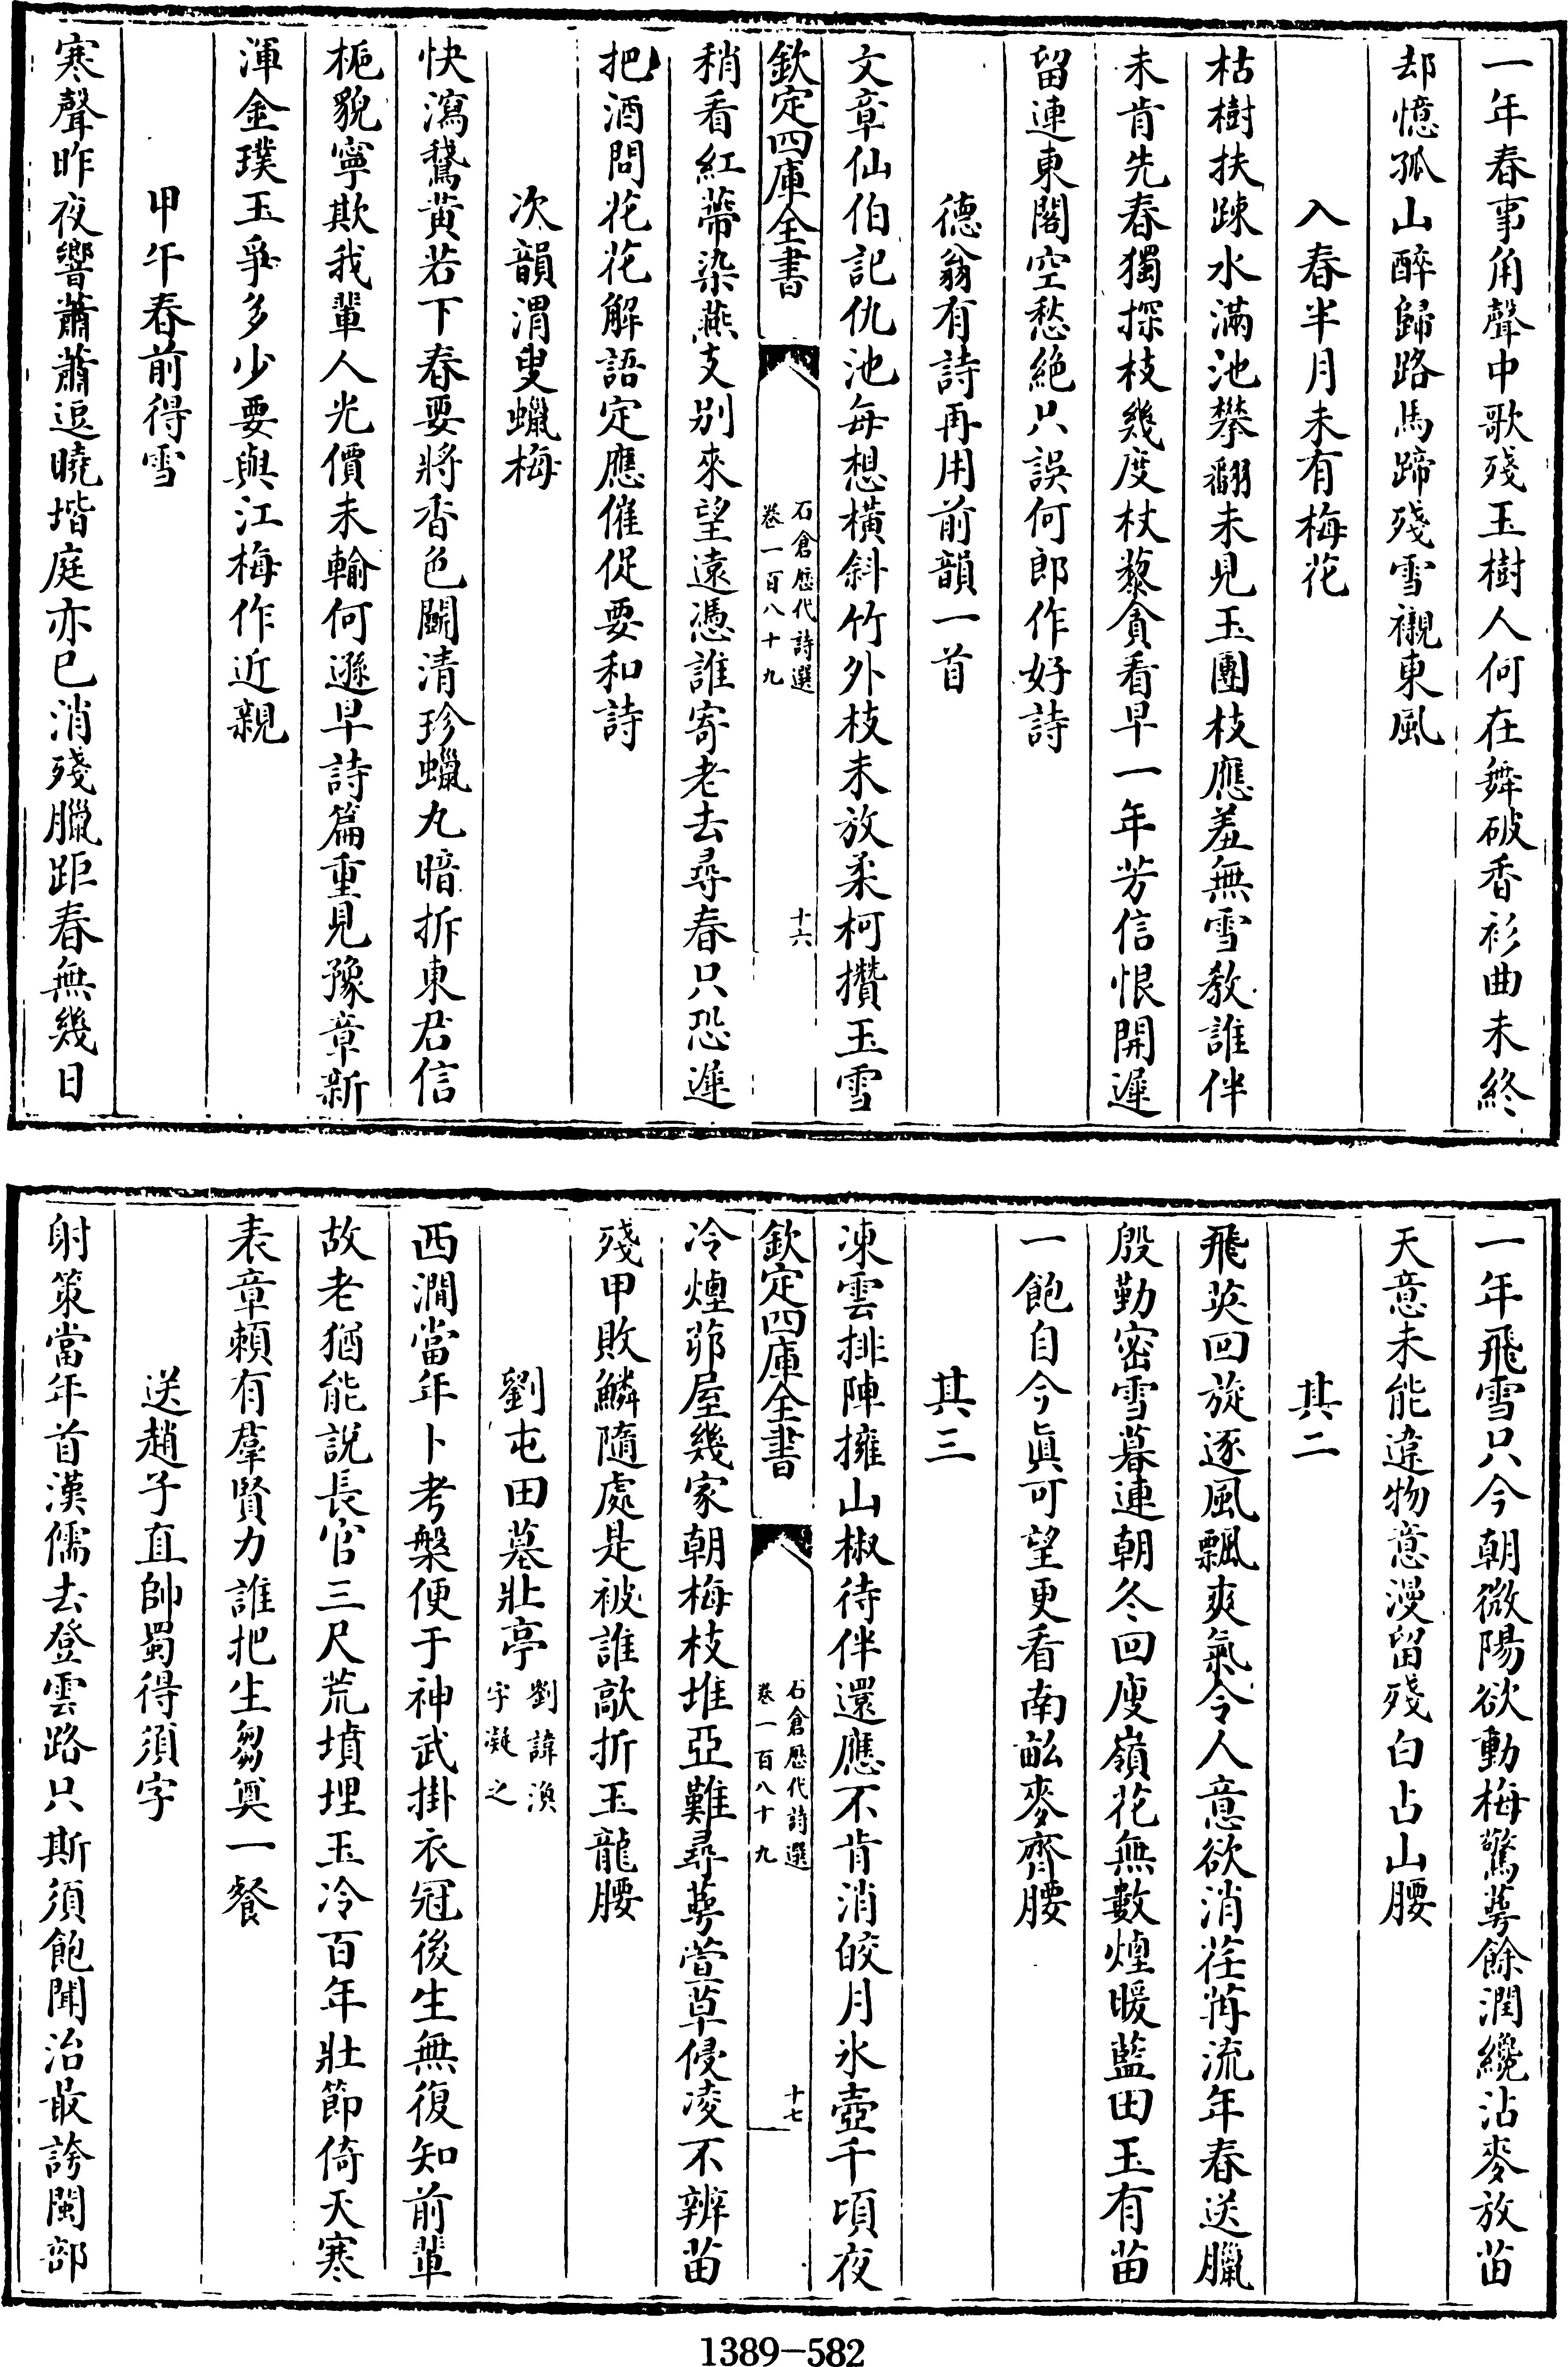 一年春事角聲中歌殘玉樹人何在舞破香衫曲未終
却憶孤山醉歸路馬蹄殘雪襯東風
入春半月未有梅花
枯樹扶踈水滿池攀翻未見玉團枝應羞無雪教誰伴
未肯先春獨探枝幾度杖藜貪看早一年芳信恨開遲
留連東閣空愁絶只誤何郎作好詩
德翁有詩再用前韻一首
文章仙伯記仇池每想橫斜竹外枝未放柔柯攢玉雪
欽定四庫全書
石倉歷代詩選
卷一百八十九
十六
稍看紅蔕染燕支别來望遠憑誰寄老去尋春只恐遲
把酒問花花解語定應催促要和詩
次韻渭叟蠟梅
快瀉鵞黄若下春要將香色鬬清珍蠟丸暗拆東君信
梔貌寧欺我輩人光價未輸何遜早詩篇重見豫章新
渾金璞玉爭多少要與江梅作近親
甲午春前得雪
寒聲昨夜響蕭蕭逗曉堦庭亦已消殘臘距春無幾日
一年飛雪只今朝微陽欲動梅驚萼餘潤纔沾麥放苗
天意未能違物意漫留殘白占山腰
其二
飛英回旋逐風飄爽氣令人意欲消荏苒流年春送臘
殷勤密雪暮連朝冬回庾嶺花無數煙暖藍田玉有苗
一飽自今眞可望更看南畝麥齊腰
其三
凍雲排陣擁山椒待伴還應不肯消皎月氷壺千頃夜
欽定四庫全書
石倉歷代詩選
卷一百八十九
十七
冷煙茆屋幾家朝梅枝堆亞難尋萼萱草侵凌不辨苗
殘甲敗鱗隨處是被誰敲折玉龍腰
劉屯田墓壯亭
劉諱渙
字凝之
西澗當年卜考槃便于神武掛衣冠後生無復知前輩
故老猶能說長官三尺荒墳埋玉冷百年壯節倚天寒
表章賴有羣賢力誰把生芻奠一餐
送趙子直帥蜀得須字
射策當年首漢儒去登雲路只斯須飽聞治最誇閩部
1389-582